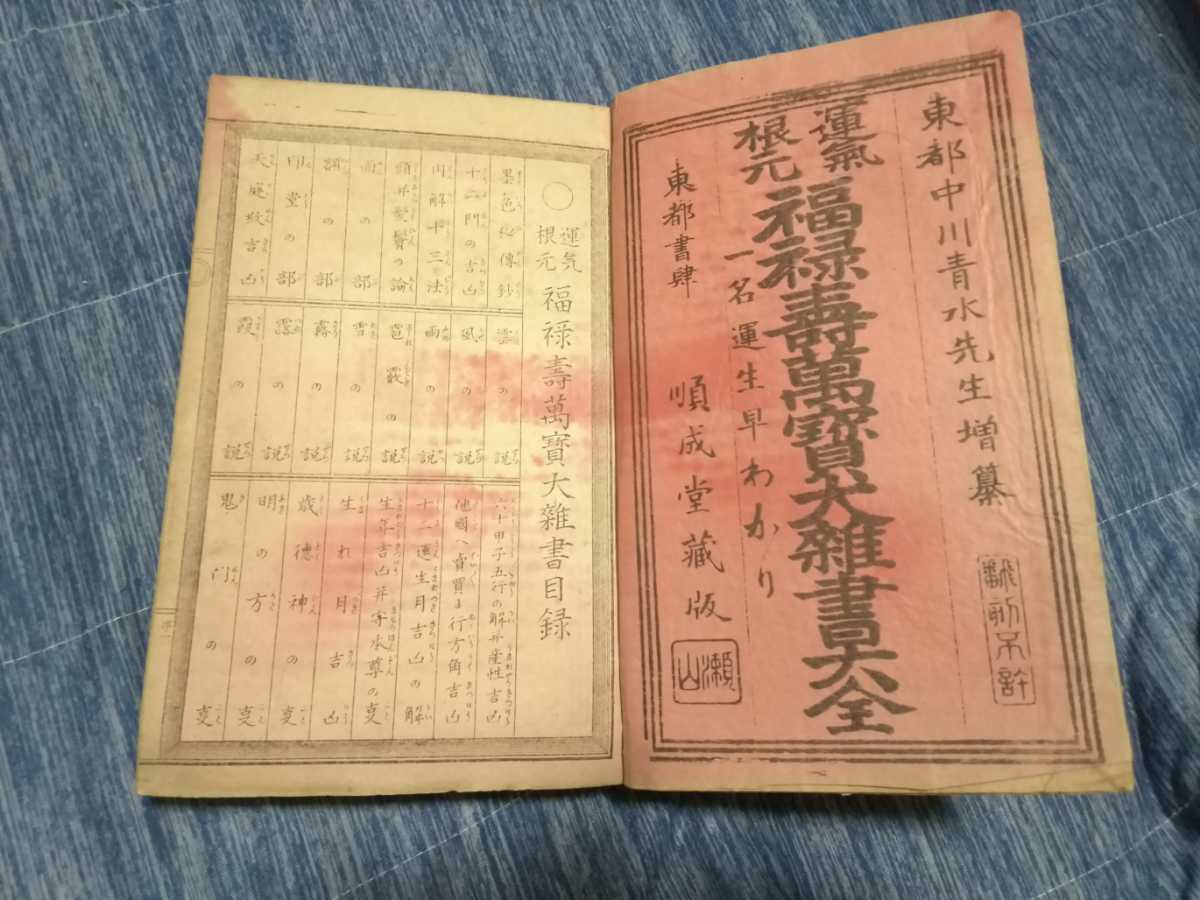 東都中川青水先生増纂
翻刻不許
運氣
根元
福禄壽萬寶大雜書大全
一名運生早わかり
東都書肆 順成堂藏版
瀬山
○運気
根元
福禄壽萬寶大雜書目録
墨色秘傳鈔
十二門の吉凶
円解十三ヶ法
頭并髪鬢の論
面の部
額の部
印堂の部
天庭紋吉凶
雲の説
風の説
雨の説
雹霰の説
雪の説
霧の説
露の説
霞の説
六十甲子五行の解并産性吉凶
他國へ賣買ま行方角吉凶
十二運生月吉凶の解
生年吉凶并守本尊の叓
生れ月吉凶
歳德神の叓
明の方の叓
鬼門の叓